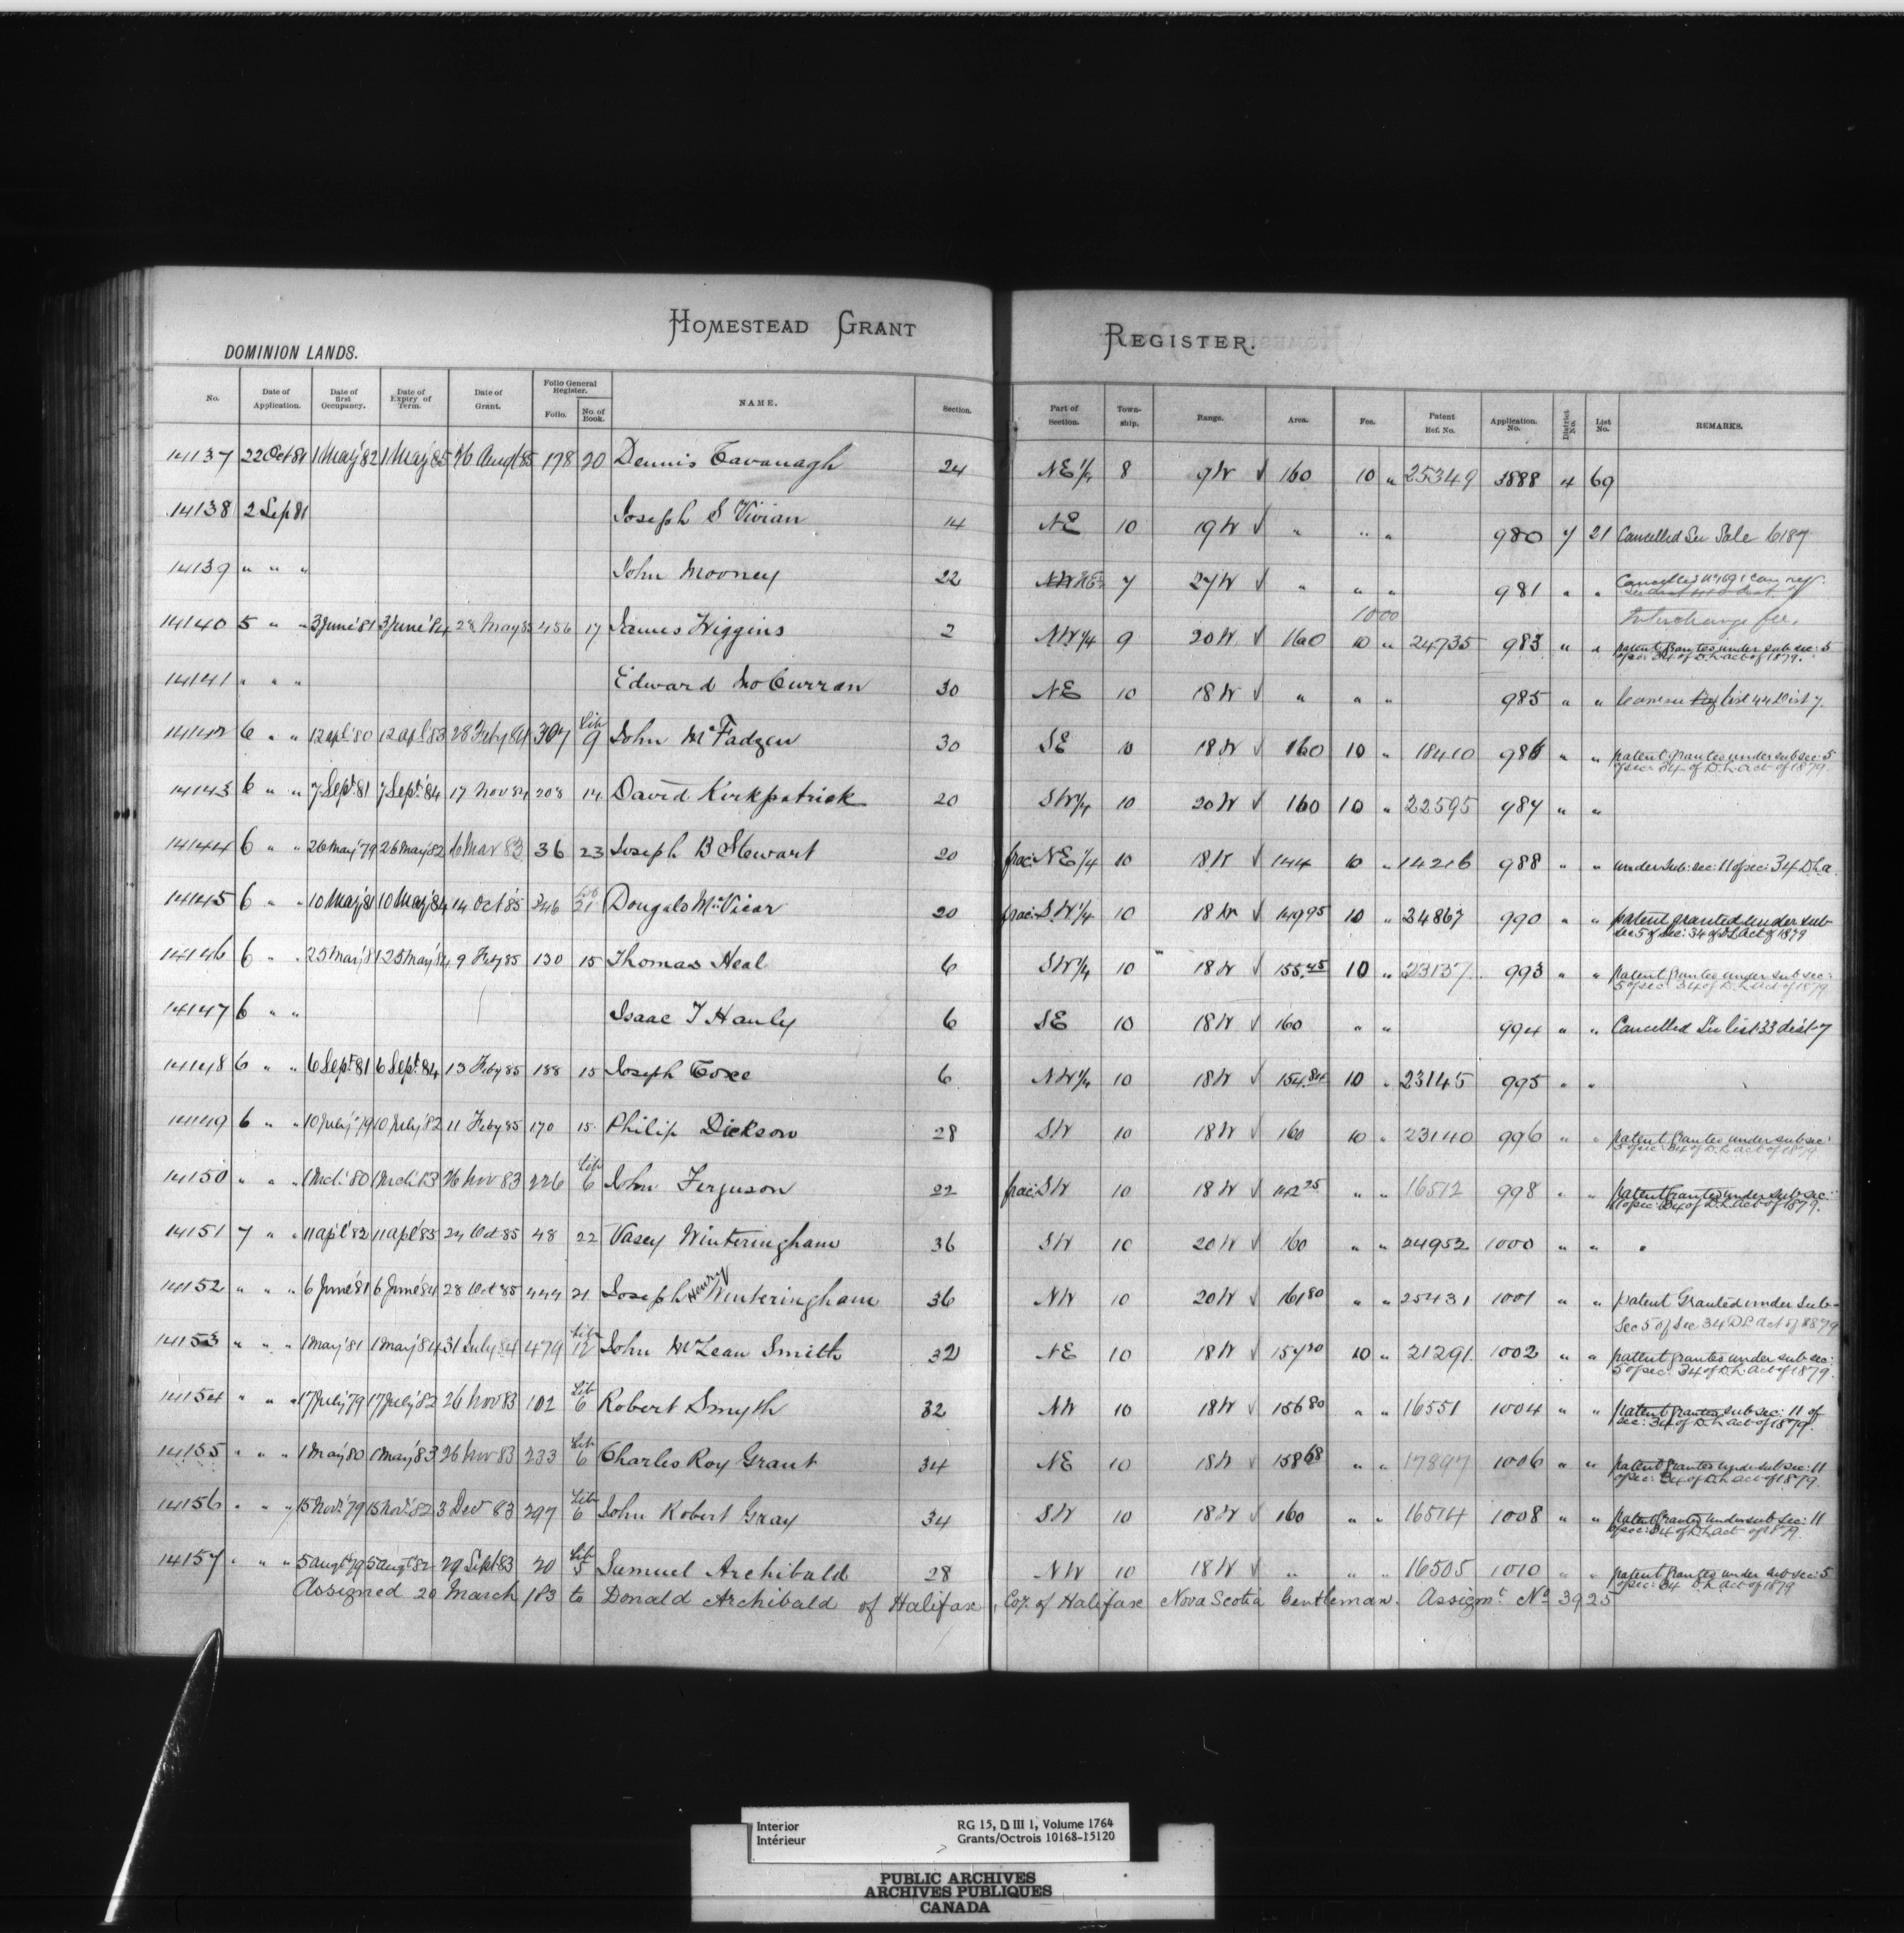 HOMESTEAD GRANT REGISTER.
DOMINION LANDS.
No. Date of Application. Date of first Occupancy. Date of Expiry of Term. Date of Grant. Folio General Register. Folio. No. of Book. NAME. Section. Part of Section. Town-ship. Range. Area. Fee. Patent Ref. No. Application. No. District No. List No. REMARKS.
14137 22 Oct 81 1 May '82 1 May '85 26 Augt 85 178 20 Dennis Cavanagh 24 NE 1/4 8 9 W √ 160 10 " 25349 3888 4 69
14138 2 Sep 81 Joseph S Vivian 14 NE 10 19 W √ " " " 980 7 21 Cancelled See Sale 6187
14139 " " " John Mooney 22 NE 7 27 W √ " " " 981 " " Cancelled
Interchange fee.
14140 5 " " 3 June '81 3 June '84 28 May 85 456 17 James Higgins 2 NW 1/4 9 20 W √ 160 1000 10 " 24735 983 " " patent grantes under sub sec: 5 of sec: 34 of D. L. act of 1879.
14141 " " " Edward McCurran 30 NE 10 18 W √ " " " 985 " " list 44 Dist 7.
14142 6 " " 12 apl '80 12 apl '83 28 Feby 84 307 Lib 9 John McFadzen 30 SE 10 18 W √ 160 10 " 18410 986 " " patent grantes under sub sec: 5 of sec: 34 of D. L. act of 1879.
14143 6 " " 7 Sept. 81 7 Sept. 84 17 Nov 84 208 14 David Kirkpatrick 20 SW 1/4 10 20 W √ 160 10 " 22595 987 " "
14144 6 " " 26 May '79 26 May '82 6 Mar 83 36 23 Joseph B Stewart 20 frac: NE 1/4 10 18 W √ 144 10 " 14216 988 " " under Sub: sec: 11 of sec: 34 D L a.
14145 6 " " 10 May '81 10 May '84 14 Oct '85 346 Lib 21 Dougald McVicar 20 frac: SW 1/4 10 18 W √ 149 95 10 " 24867 990 " " patent granted under sub sec 5 of sec: 34 of D L Act of 1879
14146 6 " " 25 May '81 25 May '84 9 Feby 85 130 15 Thomas Heal 6 SW 1/4 10 18 W √ 155.45 10 " 23137 993 " " patent grantes under sub sec: 5 of sec: 34 of D. L act of 1879
14147 6 " " Isaac T Hanly 6 SE 10 18 W √ 160 " " 994 " " Cancelled See list 33 dist 7
14148 6 " " 6 Sept. 81 6 Sept. 84 13 Feby 85 188 15 Joseph Coxe 6 NW 1/4 10 18 W √ 154.84 10 " 23145 995 " "
14149 6 " " 10 July '79 10 July '82 11 Feby 85 170 15 Philip Dickson 28 SW 10 18 W √ 160 10 " 23140 996 " " patent grantes under sub sec: 5 of sec: 34 of D. L act of 1879.
14150 " " " 1 Mch '80 1 Mch '83 26 Nov 83 226 Lib 6 John Ferguson 22 frac: SW 10 18 W √ 142 25 " " 16512 998 " " patent Grantes under sub sec: 11 of sec: 34 of D. L. act of 1879.
14151 7 " " 11 apl '82 11 apl '85 24 Oct 85 48 22 Vasey Winteringham 36 SW 10 20 W √ 160 " " 24952 1000 " "
14152 " " " 6 June '81 6 June '84 28 Oct 85 444 21 Joseph Henry Winteringham 36 NW 10 20 W √ 161 80 " " 25431 1001 " " patent Granted under Sub- Sec 5 of Sec 34 D L act of 1879
14153 " " " 1 May '81 1 May '84 31 July 84 479 Lib 12 John McLean Smith 32 NE 10 18 W √ 157 20 10 " 21291 1002 " " patent grantes under sub sec: 5 of sec: 34 of D. L. act of 1879.
14154 " " " 17 July '79 17 July '82 26 Nov 83 102 Lib 6 Robert Smyth 32 NW 10 18 W √ 156 80 " " 16551 1004 " " patent grantes sub sec: 11 of sec: 34 of D. L act of 1879.
14155 " " " 1 May '80 1 May '83 26 Nov 83 233 Lib 6 Charles Roy Grant 34 NE 10 18 W √ 158 68 " " 17897 1006 " " patent grantes under sub sec: 11 of sec: 34 of D. L. act of 1879.
14156 " " " 15 Nov. '79 15 Nov. '82 3 Dec 83 297 Lib 6 John Robert Gray 34 SW 10 18 W √ 160 " " 16574 1008 " " patent Grantes under sub sec: 11 of sec: 34 of D L act of 1879.
14157 " " " 5 augt '79 5 augt '82 29 Sept 83 20 Lib 5 Samuel Archibald 28 NW 10 18 W √ " " " 16505 1010 " " patent grantes under sub sec: 5 of sec: 34 D. L. act of 1879
Assigned 20 March 183 to Donald Archibald of Halifax, Coy. of Halifax Nova Scotia Gentleman. Assignt. No. 3925
Interior RG 15, D III 1, Volume 1764
Intérieur Grants/Octrois 10168-15120
PUBLIC ARCHIVES
ARCHIVES PUBLIQUES
CANADA